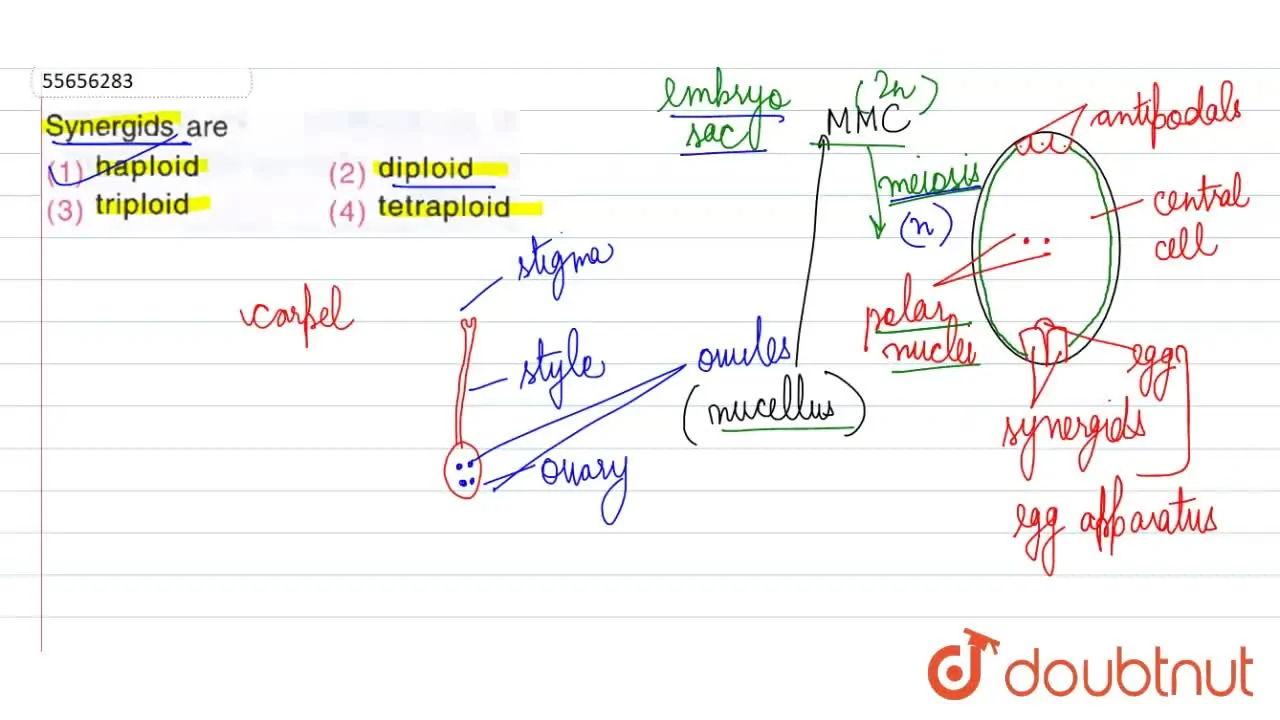 55656283
Synergids are
(1) haploid
(2) diploid
(3) triploid
(4) tetraploid
carpel
stigma
style
ovary
ovules
(nucellus)
embryo
sac
(2n)
MMC
meiosis
(n)
antipodals
central
cell
polar
nuclei
egg
synergids
egg apparatus
doubtnut